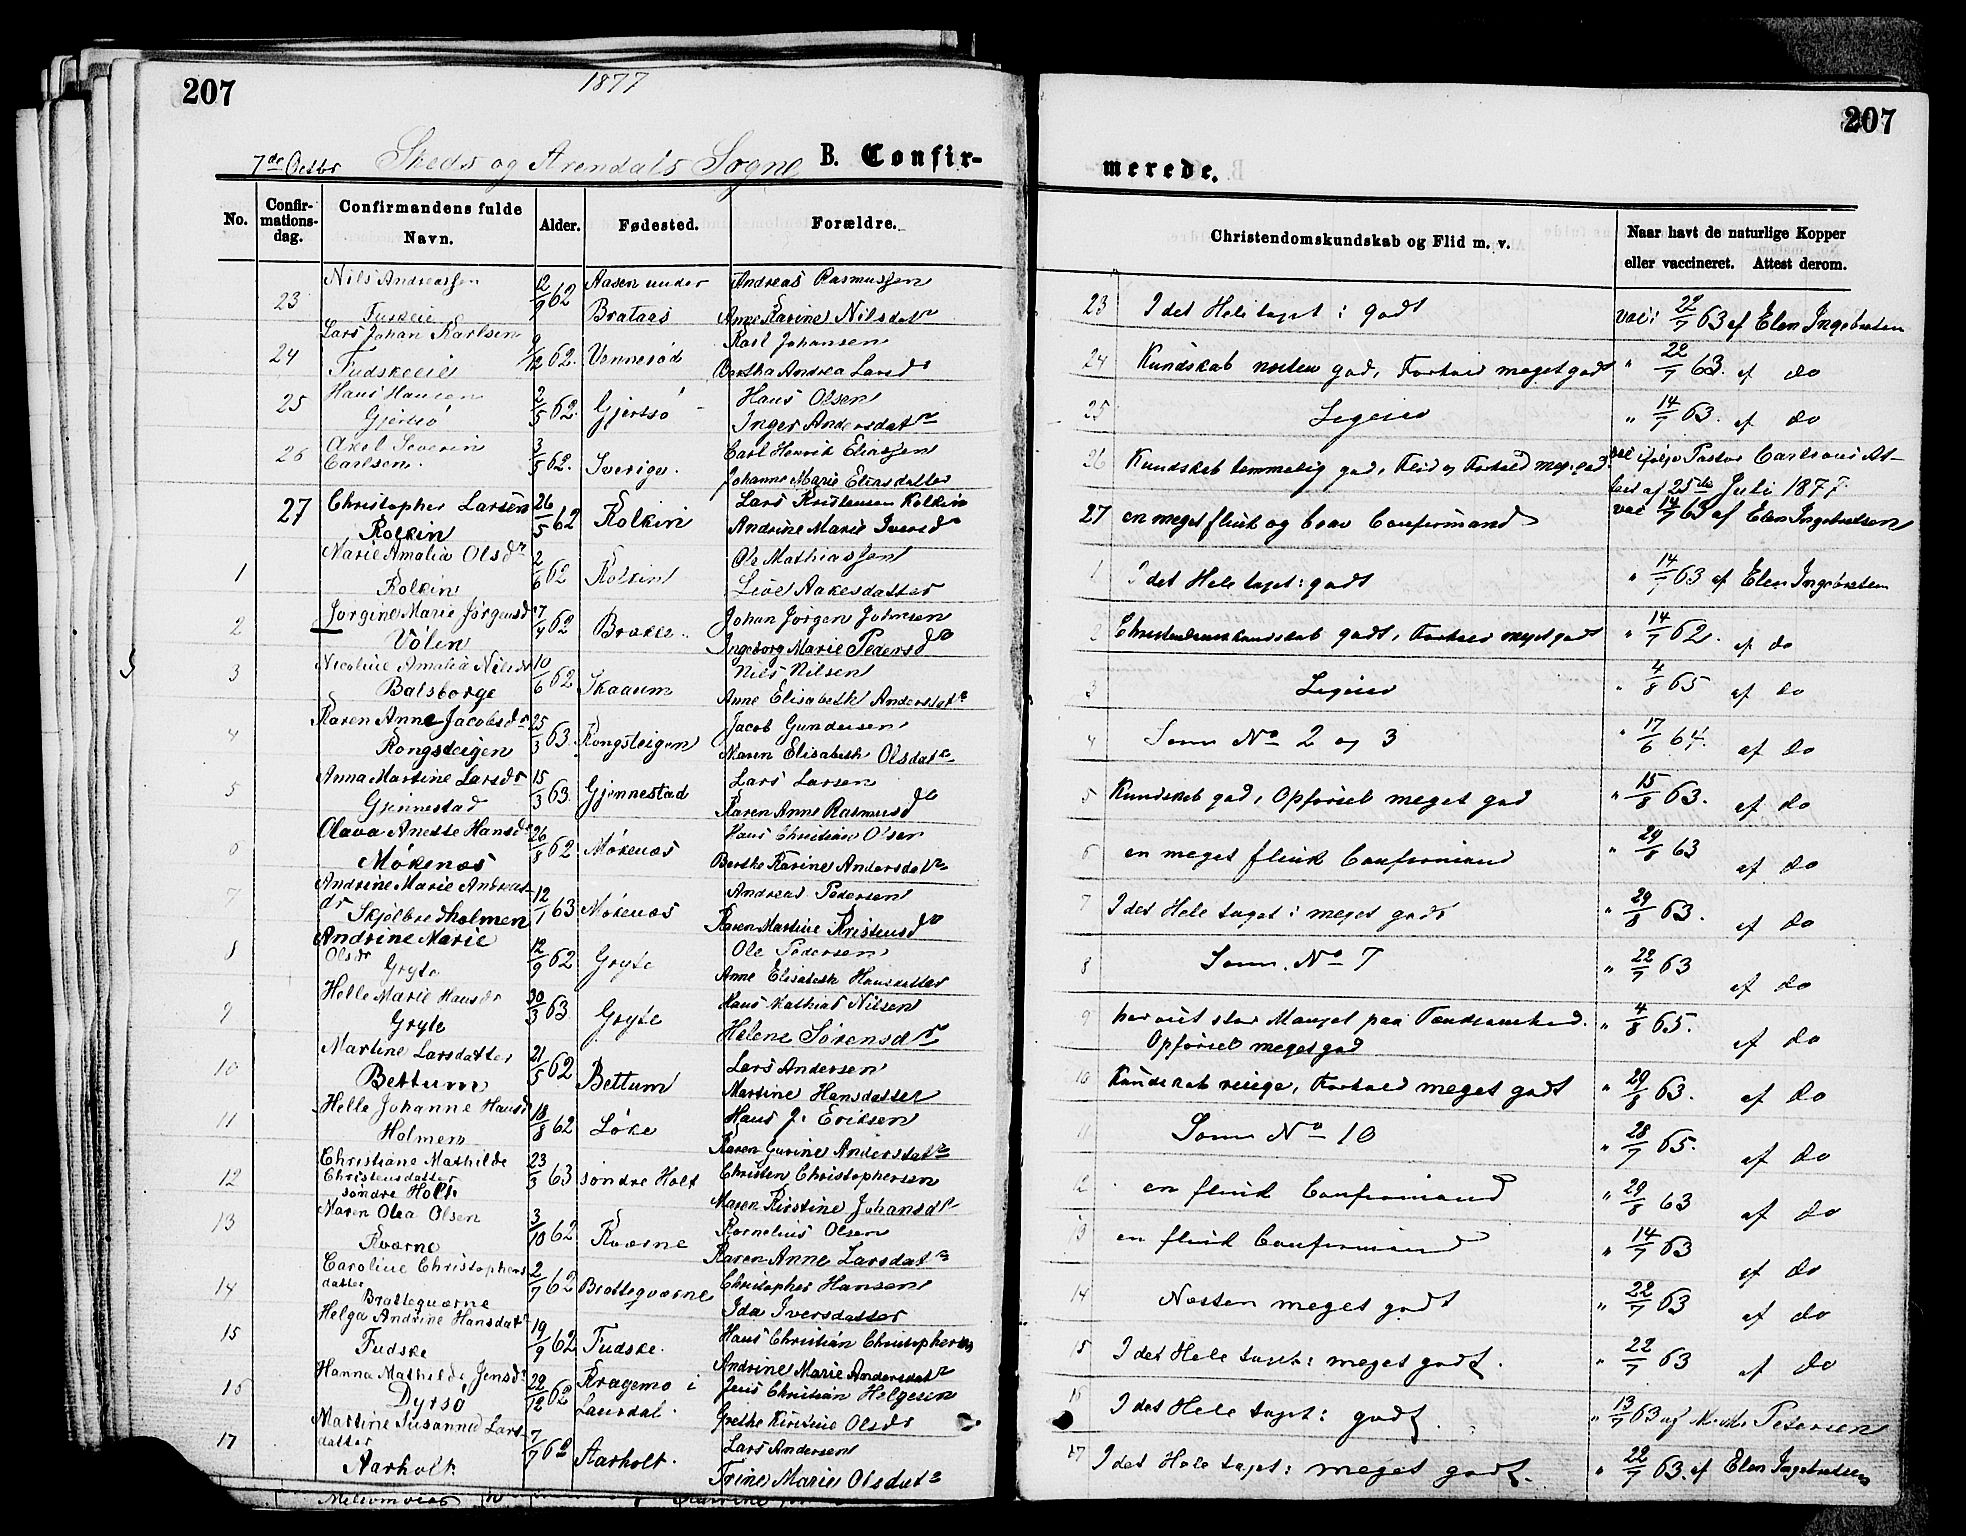 207
1877
7de Octbr Skeds og Arendals Sogne B. Confir-
No.
Confir-
mations-
dag.
Confirmandens fulde
Navn.
Alder.
Fødested.
Forældre.
23 Nils Andreassen 12/9 62 Aasen under Andreas Rasmussen
Brataas Anne Karine Nilsdatr
24 Lars Johan Karlsen 9/12 62. Vennerød Karl Johansen
Fudskeeie Bertha Andrea Larsdr
25 Hans Hansen 2/5 62. Gjertsø Hans Olsen
Gjertsø Inger Andersdatr
26 Axel Severin 3/5 62. Sverige. Carl Henrik Eliassen
Carlsen. Johanne Marie Eliasdatter
27 Christopher Larsen 26/5 62 Rolkin Lars Kristensen Rolkin
Rolkin Andrine Marie Iversdr
1 Marie Amalia Olsdr 2/6 62 Rolkin Ole Mathiassen
Rolkin Aakesdatter
2 Jørgine Marie Jørgensdr 7/4 62 Brække. Johan Jørgen
Völen Ingeborg Marie Pedersdr
3 Nicoline Amalia Nilsdr 10/6 62 Skaaum Nils Nilsen
Balsborge Anne Elisabeth Andersdatr
4 Karen Anne Jacobsdr 25/3 63. Rongsteigen Jacob Gundersen
Rongsteigen Maren Elisabeth Olsdatr
5 Anna Martine Larsdr 15/3 63. Gjennestad Lars Larsen
Gjennestad Karen Anne Rasmusdr
6 Olava Anette Hansdr 26/8 62 Møkenæs Hans Christian Olsen
Møkenæs Berthe Karine Andersdatr
7 Andrine Marie Andreas- 12/1 63 Møkenæs Andreas Pedersen
dr Skjølbredholmen Karen Martine Kristensdr
8 Andrine Marie 12/9 62 Gryte Ole Pedersen
Olsdr
Gryte Anne Elisabeth Hansdatter
9 Helle Marie Hansdr 30/3 63 Gryte Hans Mathias Nilsen
Gryte Helene Sørensdr
10 Martine Larsdatter 21/5 62 Bettum Lars Andersen
Bettum Martine Hansdatter
11 Helle Johanne Hansdr 18/8 62 Løke Hans J. Eriksen
Holmen Karen Gurine Andersdatr
12 Christiane Mathilde 23/3 63 søndre Holt Christen Christophersen
Christensdatter
søndre Holt Maren Kirstine Johansdr
13 Maren Olea Olsen 3/10 62 Kværne Kornelius Olsen
Kværne Karen Anne Larsdatr
14 Caroline Christophers 2/7 62 Brattekværne Christopher Hansen
datter
Brattegværne Ida Iversdatter
15 Helga Andrine Hansdatr 19/9 62 Fudske. Hans Christian Christophersen
Fudske Andrine Marie Andersdatr
16 Hanna Mathilde Jensdr 22/12 62 Kragemo i Jens Christian Helgesen
Dyrsø Laurdal. Grethe Kirstine Olsdr
17 Martine Susanna Lars 7/7 62 Aarholt. Lars Andersen
datter
Aarholt Trine Marie Olsdatr
207
merede.
Christendomskundskab og Flid m. v.
Naar havt de naturlige Kopper
eller vaccineret. Attest derom.
23 I det Hele taget: godt vac: 22/7 63 af Elen Ingebretsen
24 Kundskab næsten god, Forhold meget godt " 22/7 63. af do
25 Ligesaa " 14/7 63. af do
26 Kundskab temmelig god, Flid og Forhold meget god. vac ifølge Pastor Carlsons At-
test af 25de Juli 1877.
27 en meget flink og brav Confirmand vac 14/7 63 af Elen Ingebretsen
1 I det Hele taget: godt " 14/7 63 af Elen Ingebretsen
2 Christendomskundskab godt, Forhold meget godt " 14/7 62. af do
3 Ligesaa " 4/8 65 af do
4 Som No 2 og 3 " 17/6 64. af do
5 Kundskab god, Opførsel meget god " 15/8 63. af do
6 en meget flink Confirmand " 29/8 63 af do
7 I det Hele taget: meget godt " 29/8 63. af do
8 Som No 7 " 22/7 63 af do
9 har vist stor Mangel paa " 4/8 65. af do
Opførsel meget god
10 Kundskab ringe, Forhold meget godt " 29/8 63. af do
11 Som No 10 " 28/7 65. af do
12 en flink Confirmand " 29/8 63 af do
13 en flink Confirmand " 14/7 63 af do
14 Næsten meget godt " 22/7 63 af do
15 I det Hele taget: meget godt. " 22/7 63 af do
16 I det Hele taget: godt. " 13/7 63 af Petersen
17 I det Hele taget: meget godt. " 22/7 63. af Elen Ingebretsen